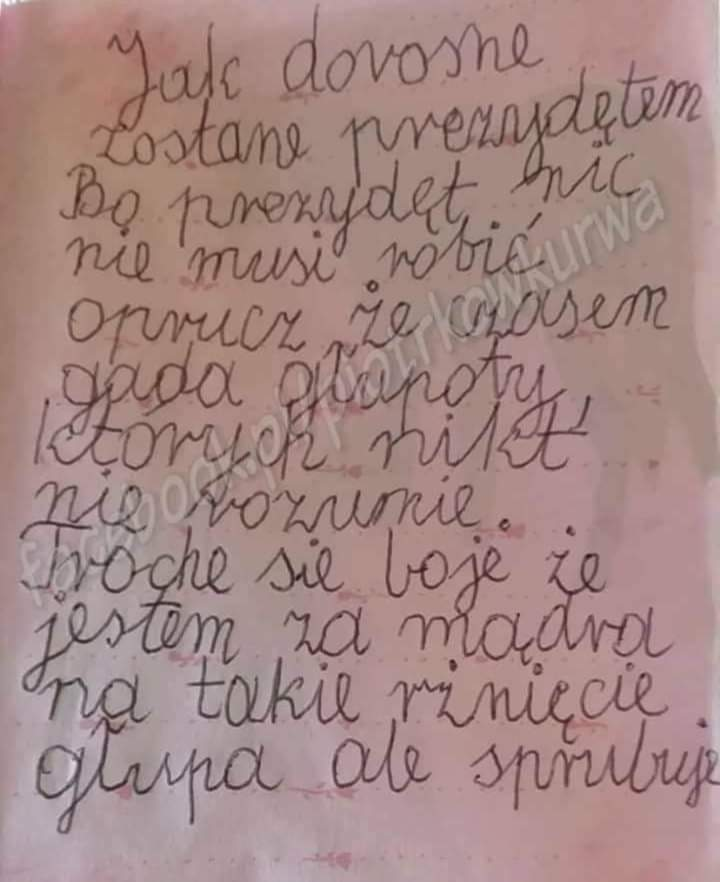 Jak dorosne
zostane prezydętem
Bo prezydęt nic
nie musi robić
oprucz że czasem
gada głupoty
których nikt
nie rozumie.
Troche sie boje że
jestem za mądra
na takie rżnięcie
głupa ale sprubuje
facebook.pl/piotrkowkurwa